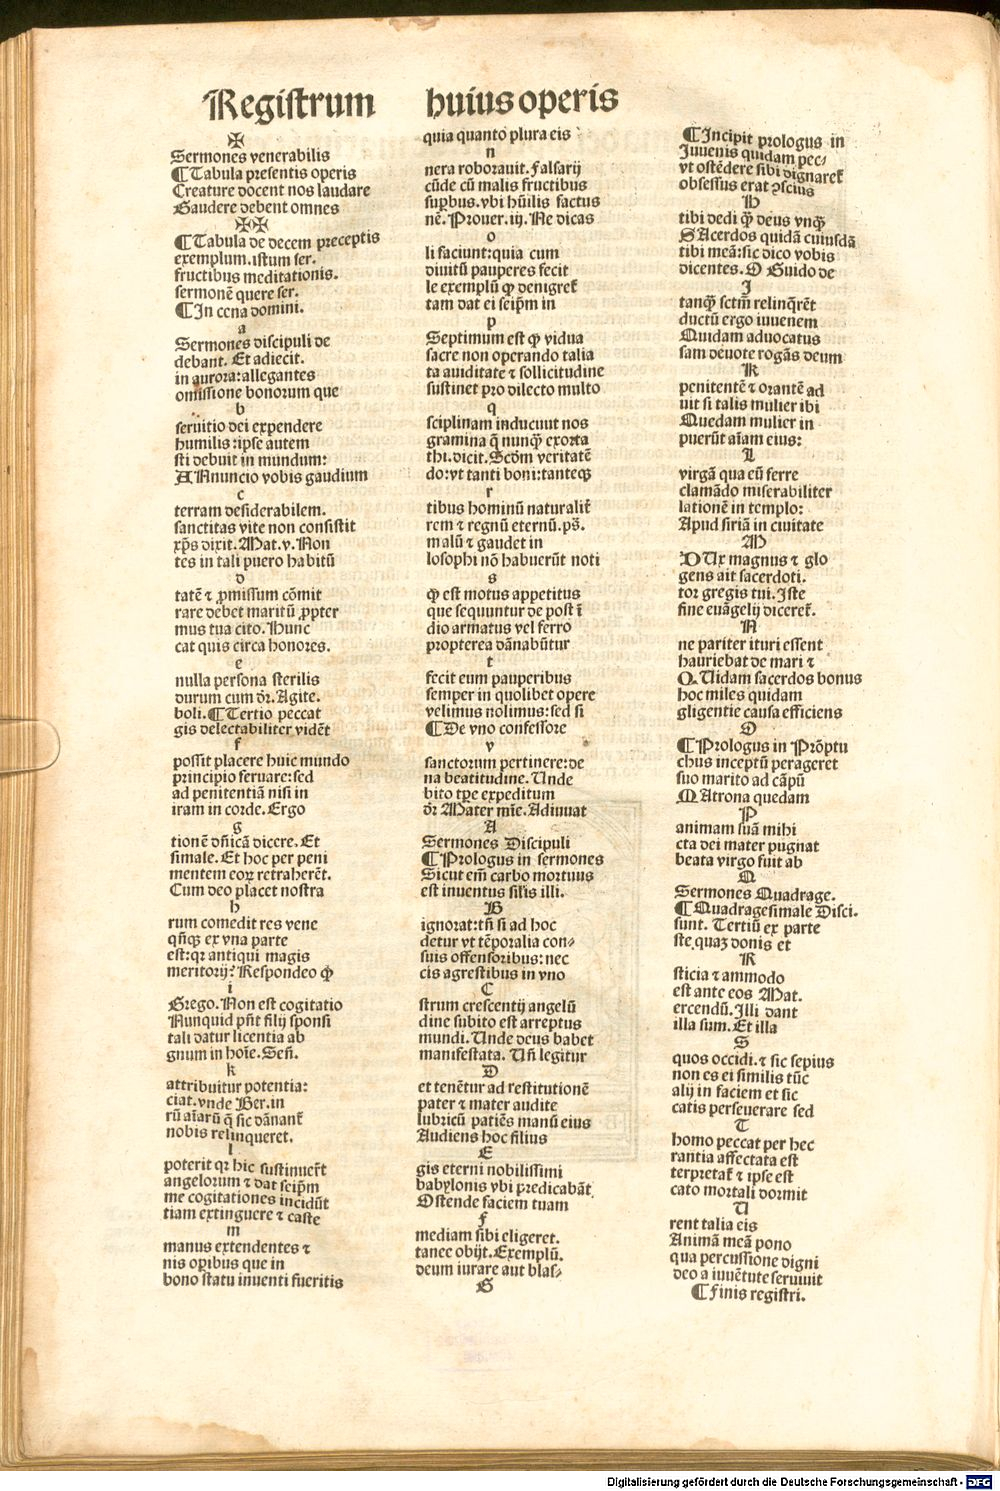 Regiſtrum huius operis
✠
Sermones venerabilis
¶Tabula preſentis operis
Creature docent nos laudare
Gaudere debent omnes
✠✠
¶Tabula de decem preceptis
exemplum.iſtum ſer.
fructibus meditationis.
ſermonē quere ſer.
¶In cena domini.
a
Sermones diſcipuli de
debant. Et adiecit.
in aurora:allegantes
omiſſione bonorum que
b
ſeruitio dei expendere
humilis:ipſe autem
ſti debuit in mundum:
ANnuncio vobis gaudium
c
terram deſiderabilem.
ſanctitas vite non conſiſtit
xp̄s dixit.Mat.v.Non
tes in tali puero habitū
d
tatē ⁊ ꝓmiſſum cōmit
rare debet maritū ꝓpter
mus tua cito.Hunc
cat quis circa honores.
e
nulla perſona ſterilis
durum cum dr̄.Agite.
boli.¶Tertio peccat
gis delectabiliter vidēt
f
poſſit placere huic mundo
principio ſeruare:ſed
ad penitentiā niſi in
iram in corde.Ergo
g
tionē dn̄icā dicere.Et
ſimale.Et hoc per peni
mentem eoꝝ retraherēt.
Cum deo placet noſtra
h
rum comedit res vene
qn̄qꝫ ex vna parte
eſt:qꝛ antiqui magis
meritorij?Reſpondeo ꝙ
i
Grego.Non eſt cogitatio
Nunquid pn̄t filij ſponſi
tali datur licentia ab
gnum in hoīe.Sen̄.
k
attribuitur potentia:
ciat.vnde Ber.in
rū aīarū q̄ ſic dānant᷑
nobis relinqueret.
l
poterit qꝛ hic ſuſtinuer̄t
angelorum ⁊ dat ſeip̄m
me cogitationes incidūt
tiam extinguere ⁊ caſte
m
manus extendentes ⁊
nis oꝑibus que in
bono ſtatu inuenti fueritis
quia quanto plura eis
n
nera roborauit.Falſarij
cūde cū malis fructibus
ſuꝑbus.vbi hūilis factus
nē.Prouer.iij.Ne dicas
o
li faciunt:quia cum
diuitū pauperes fecit
le exemplū ꝙ denigret᷑
tam dat ei ſeip̄m in
p
Septimum eſt ꝙ vidua
ſacre non operando talia
ta auiditate ⁊ ſollicitudine
ſuſtinet pro dilecto multo
q
ſciplinam inducunt nos
gramina q̄ nunqͥ exorta
thi.dicit.Scd̄m veritatē
do:vt tanti boni:tanteqꝫ
r
tibus hominū naturalit᷑
rem ⁊ regnū eternū.ps̄.
malū ⁊ gaudet in
loſophi nō habuerūt noti
s
ꝙ eſt motus appetitus
que ſequuntur de poſt ī
dio armatus vel ferro
propterea dānabūtur
t
fecit eum pauperibus
ſemper in quolibet opere
velimus nolimus:ſed ſi
¶De vno confeſſore
v
ſanctorum pertinere:de
na beatitudine.Unde
bito tꝑe expeditum
dr̄ Mater mīe.Adiuuat
A
Sermones Diſcipuli
¶Prologus in ſermones
Sicut em̄ carbo mortuus
eſt inuentus ſil̄is illi.
B
ignorat:tn̄ ſi ad hoc
detur vt tēporalia con⸗
ſuis offenſoribus:nec
cis agreſtibus in vno
C
ſtrum creſcentij angelū
dine ſubito eſt arreptus
mundi.Unde deus habet
manifeſtata. Un̄ legitur
D
et tenētur ad reſtitutionē
pater ⁊ mater audite
lubricū patiēs manū eius
Audiens hoc filius
E
gis eterni nobiliſſimi
babylonis vbi predicabāt
Oſtende faciem tuam
F
mediam ſibi eligeret.
tanee obijt.Exemplū.
deum iurare aut blaſ⸗
G
¶Incipit prologus in
Iuuenis quidam pec⸗
vt oſtēdere ſibi dignaret᷑
obſeſſus erat ꝯſcius
H
tibi dedi ꝙ̄ deus vnqͣ̄
SAcerdos quidā cuiuſdā
tibi meā:ſic dico vobis
dicentes.O Guido de
I
tanqͣ̄ ſctm̄ relinq̄rēt
ductū ergo iuuenem
Quidam aduocatus
ſam deuote rogās deum
K
penitentē ⁊ orantē ad
uit ſi talis mulier ibi
Quedam mulier in
puerūt aīam eius:
L
virgā qua eū ferre
clamādo miſerabiliter
lationē in templo:
Apud ſiriā in ciuitate
M
DUx magnus ⁊ glo
gens ait ſacerdoti.
tor gregis tui.Iſte
fine euāgelij diceret᷑.
N
ne pariter ituri eſſent
hauriebat de mari ⁊
QUidam ſacerdos bonus
hoc miles quidam
gligentie cauſa efficiens
O
¶Prologus in Prōptu
chus inceptū perageret
ſuo marito ad cāpū
MAtrona quedam
P
animam ſuā mihi
cta dei mater pugnat
beata virgo fuit ab
Q
Sermones Quadrage.
¶Quadrageſimale Diſci.
ſunt. Tertiū ex parte
ſte quaꝫ donis et
R
ſticia ⁊ ammodo
eſt ante eos Mat.
ercendū.Illi dant
illa ſum.Et illa
S
quos occidi.⁊ ſic ſepius
non es ei ſimilis tūc
alij in faciem et ſic
catis perſeuerare ſed
T
homo peccat per hec
rantia affectata eſt
terpretat᷑ ⁊ ipſe eſt
cato mortali dormit
U
rent talia eis
Animā meā pono
qua percuſſione digni
deo a iuuētute ſeruiuit
¶Finis regiſtri.
Digitalisierung gefördert durch die Deutsche Forschungsgemeinschaft - DFG